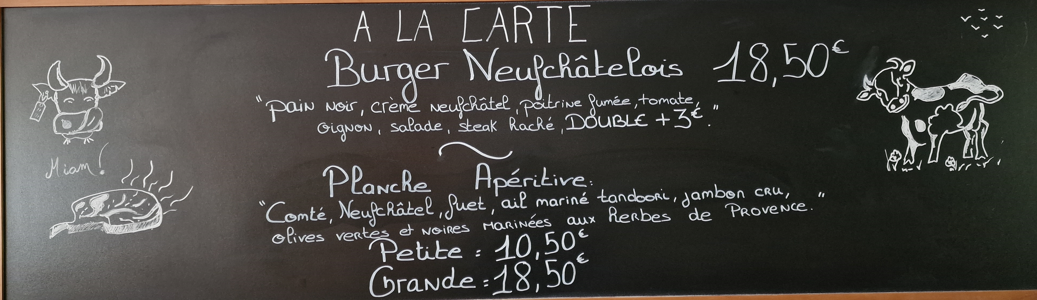 A LA CARTE
Burger Neufchâtelois 18,50€
"pain noir, crème neufchâtel, poitrine fumée, tomate,
oignon, salade, steak haché, DOUBLE + 3€."
Miam!
Planche Apéritive:
"Comté, Neufchâtel, fuet, ail mariné tandoori, jambon cru,
olives vertes et noires marinées aux herbes de Provence."
Petite : 10,50€
Grande : 18,50€